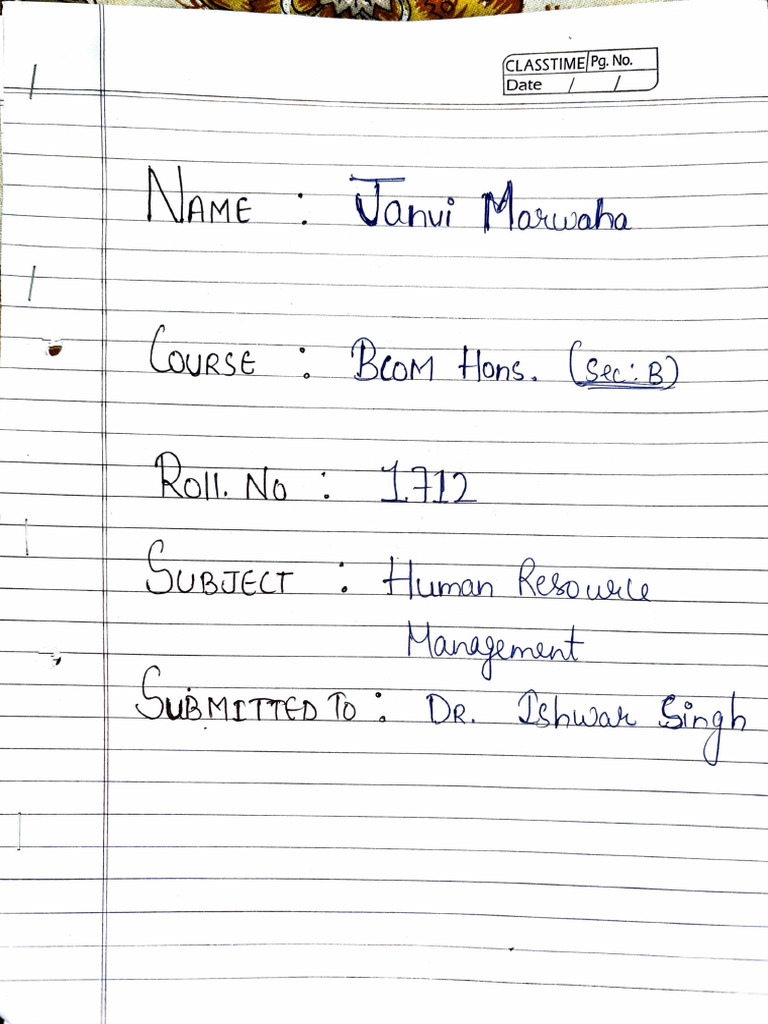 CLASSTIME Pg. No.
Date / /
NAME : Janvi Marwaha
COURSE : BCOM Hons. (Sec: B)
ROLL. NO : 1712
SUBJECT : Human Resource
Management
SUBMITTED TO : DR. Ishwar Singh